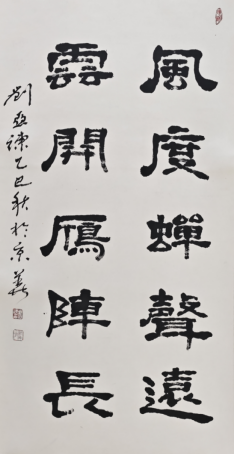 風度蟬聲遠
雲開鴈陣長
劉亞諫乙巳秋於京華